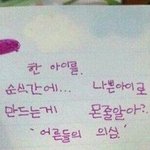 한 아이를.
순식간에... 나쁜아이로
만드는게 몬줄알아?.
"어른들의 의심."